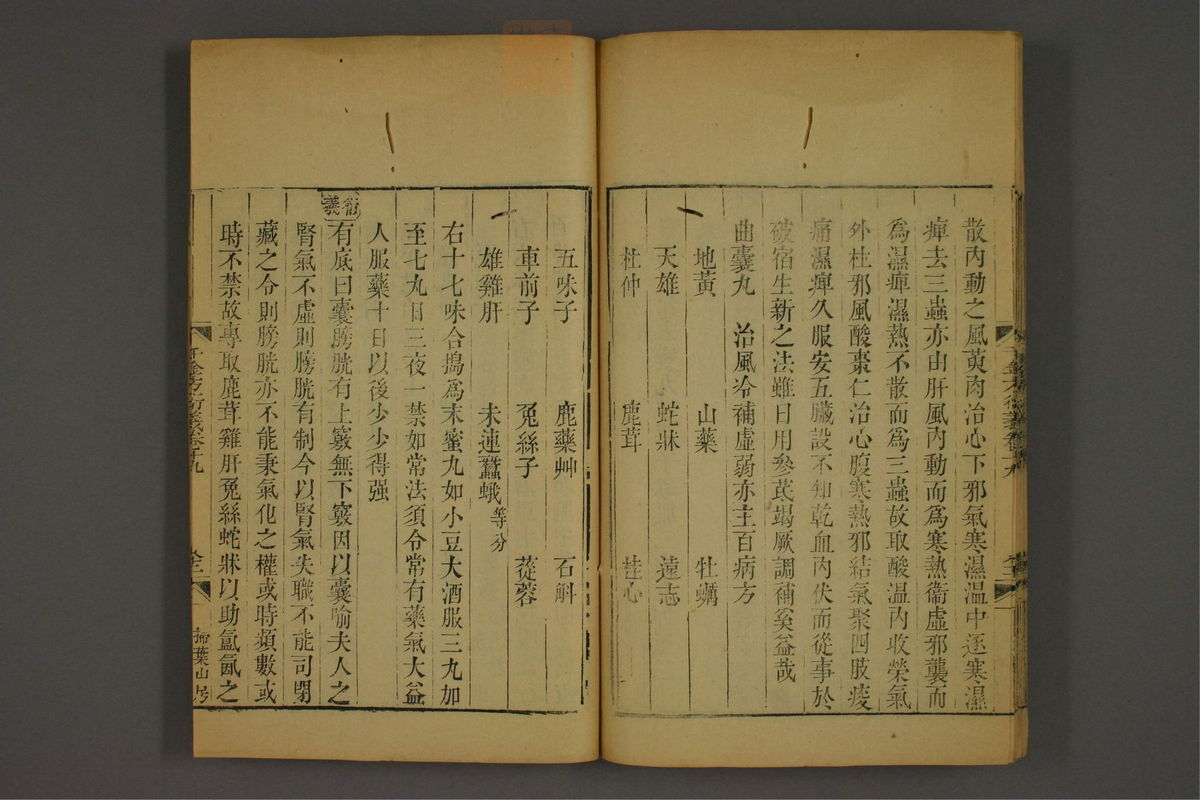 散內動之風萸肉治心下邪氣寒濕溫中逐寒濕
痺去三蟲亦由肝風內動而爲寒熱衞虛邪襲而
爲濕痺濕熱不散而爲三蟲故取酸溫內收榮氣
外杜邪風酸棗仁治心腹寒熱邪結氣聚四肢痠
痛濕痺久服安五臟設不知乾血內伏而從事於
破宿生新之法雖日用參芪竭厥調補奚益哉
曲囊丸 治風冷補虛弱亦主百病方
地黃 山藥 牡蠣
天雄 蛇牀 遠志
杜仲 鹿茸 桂心
五味子 鹿藥艸 石斛
車前子 兔絲子 蓯蓉
雄雞肝 未連蠶蛾等分
右十七味合搗爲末蜜丸如小豆大酒服三丸加
至七丸日三夜一禁如常法須令常有藥氣大益
人服藥十日以後少少得强
衍義
有底曰囊膀胱有上竅無下竅因以囊喻夫人之
腎氣不虛則膀胱有制今以腎氣失職不能司閉
藏之令則膀胱亦不能秉氣化之權或時頻數或
時不禁故專取鹿茸雞肝兔絲蛇牀以助氤氳之
千金方衍義卷十九
掃葉山房